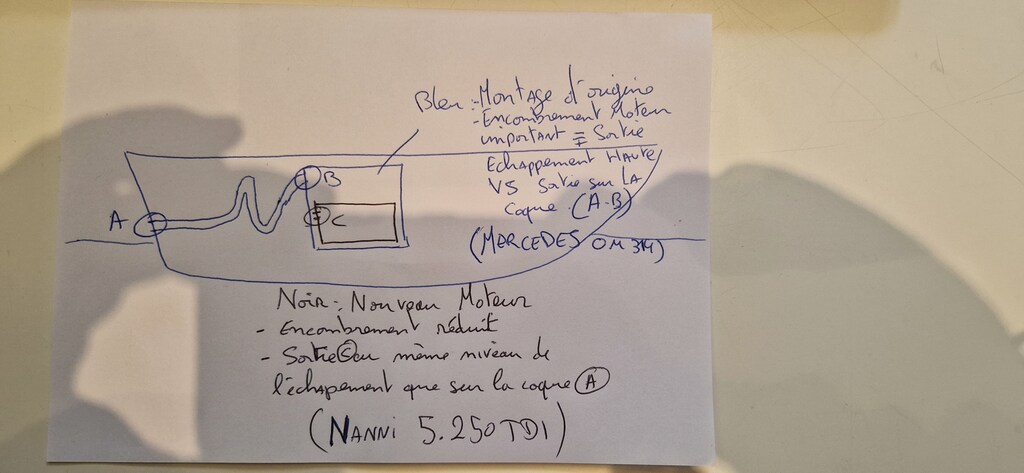 Bleu :- Montage d'origine
- Encombrement Moteur
important = Sortie
Echappement Haute
VS Sortie sur la
coque. (A-B)
(MERCEDES OM 314)
A
B
C
Noir : Nouveau Moteur
- Encombrement réduit
- Sortie C au même niveau de
l'échapement que sur la coque A
(NANNI 5.250 TDI)